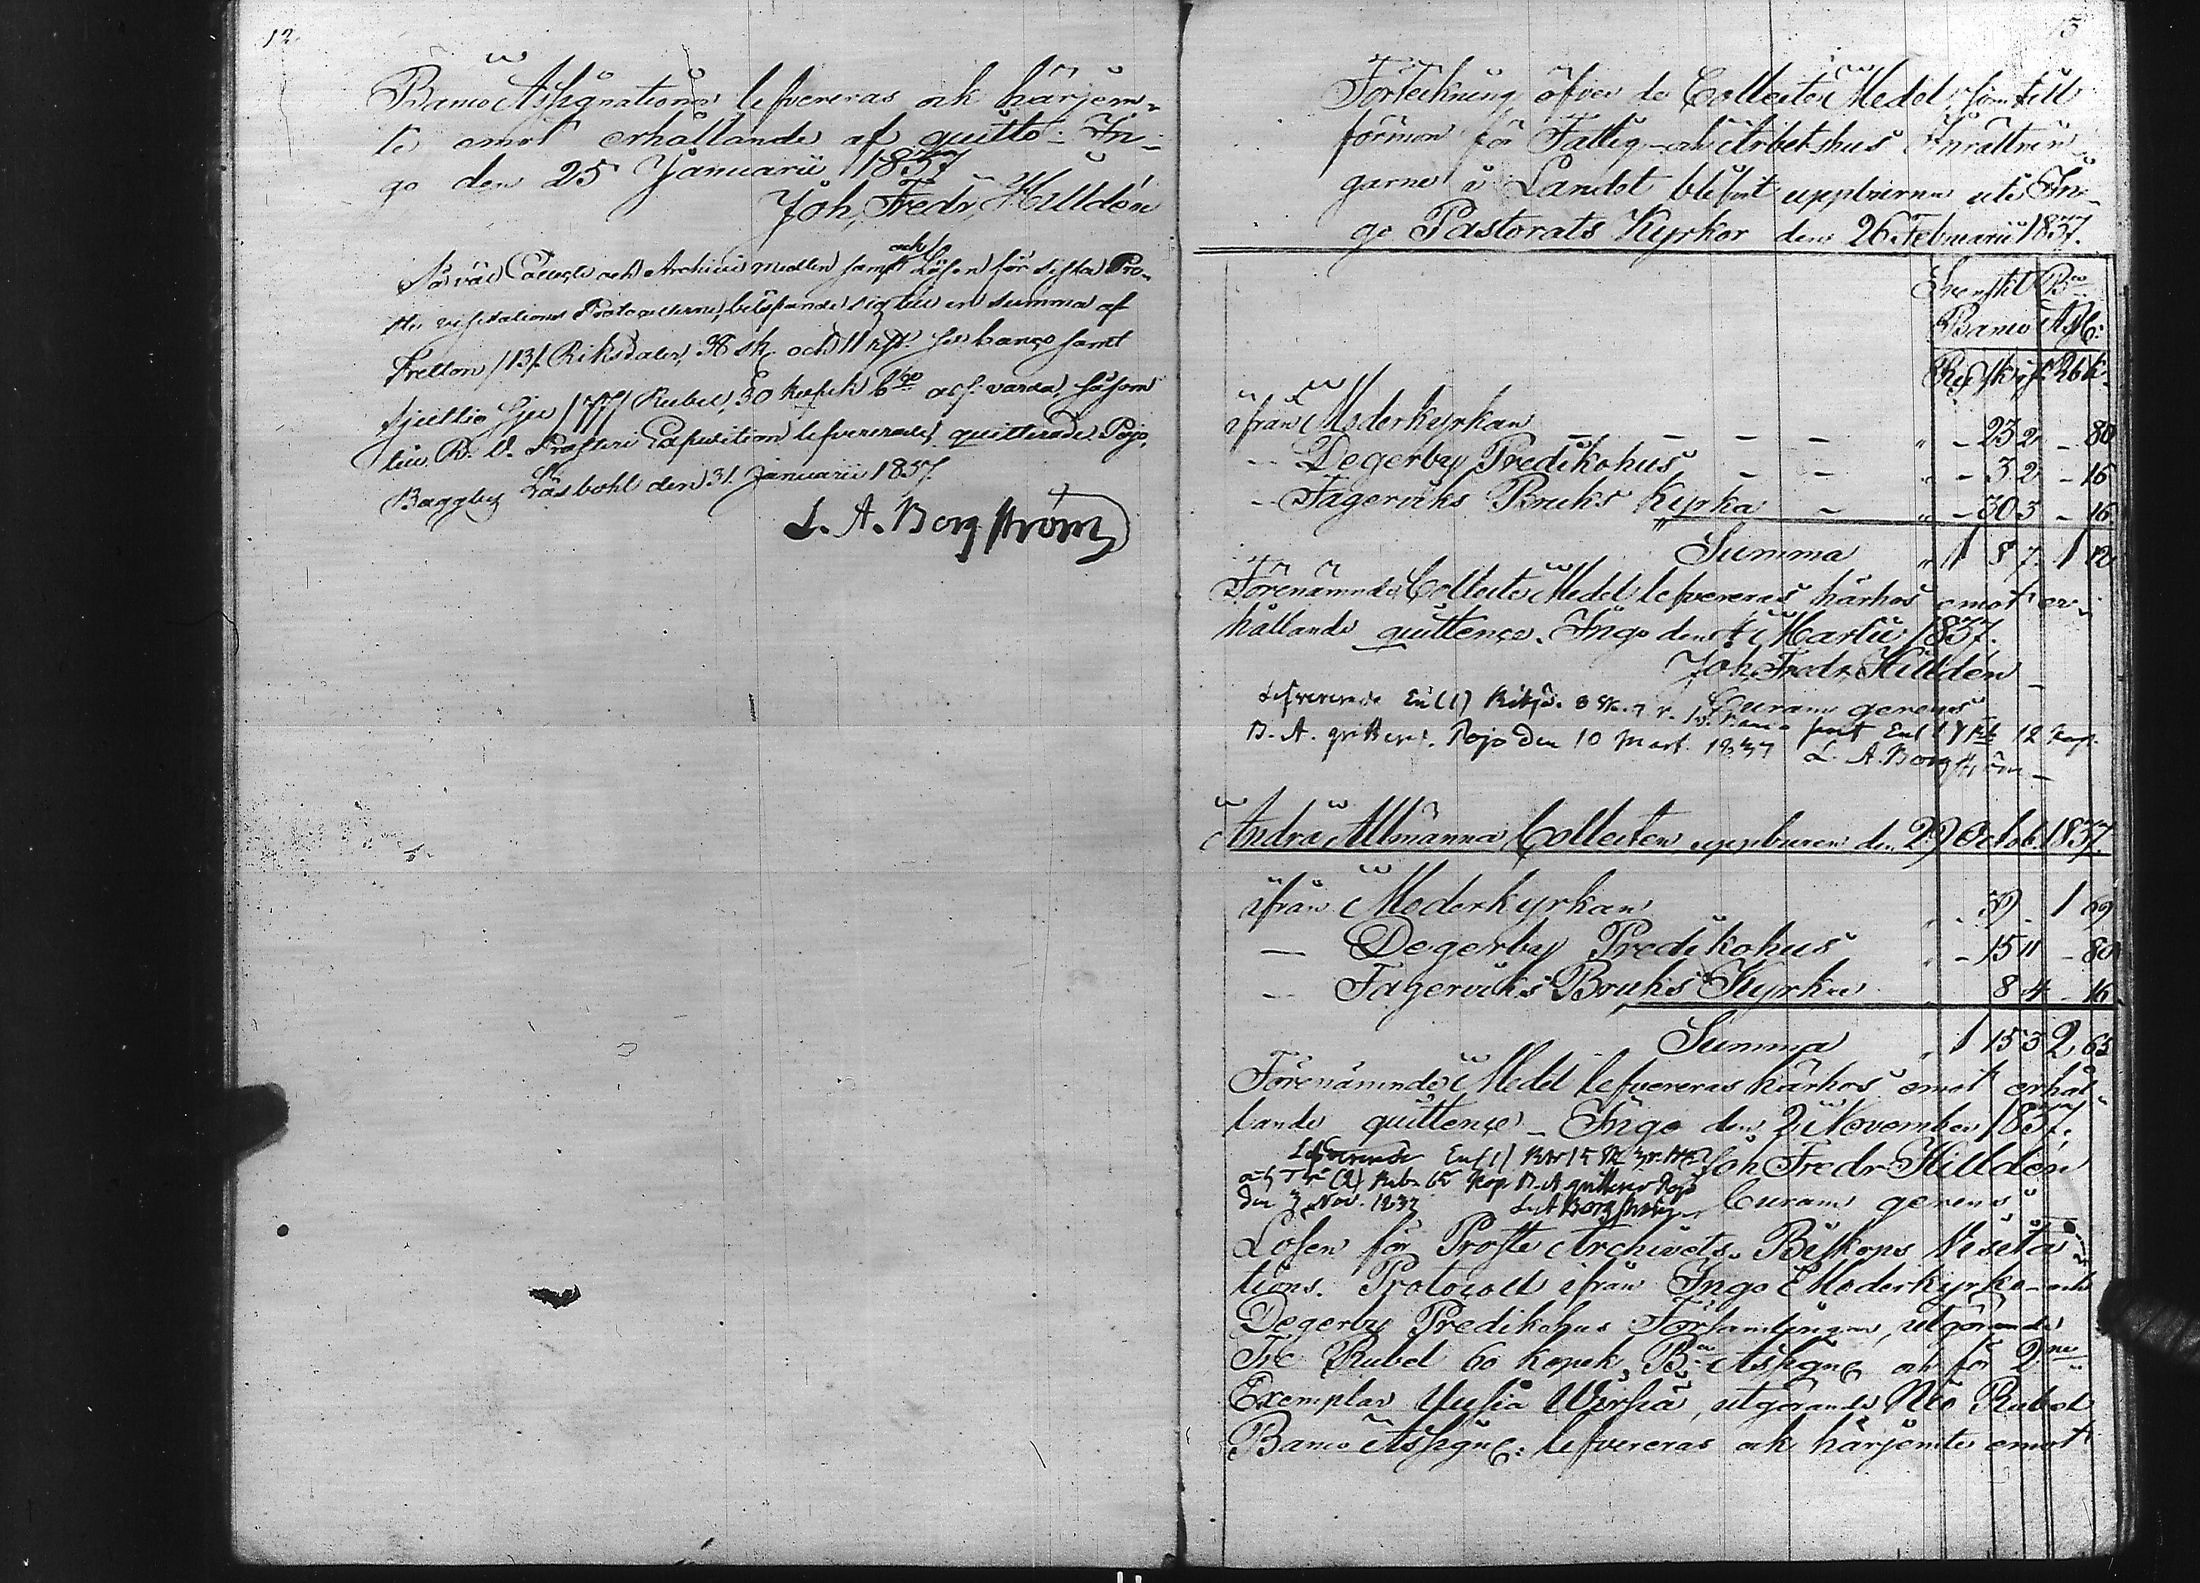 12
Banco Assignationer lefvereras och härjem-
te emot erhållande af quitto - In-
go den 25 Januarii 1837
Joh, Fredr, Hilldén
Så väl Collecte och Archivi medlen samt ock så Lösen för sista Pro-
ste visitations Protocollerne, belöpande sig till en summa af
Tretton /13/. Riksdaler, 38 sk. och 11 rst. sv. banco samt
sjuttio sju /77/ Rubel, 30 kopek b:co ass: varda, såsom
till R. O. Prosteri Expedition lefvererade, quitterade. Pojo,
Baggby Låsbohl den 31. Januarii 1837.
L. A. Borgström
13
Förteckning öfver de Collecte Medel, som till
förmon för Fattig- och Arbetshus Inrättnin-
garne i Landet blifvit uppburne uti In-
go Pastorats Kyrkor den 26 Februarii 1837.
Svenskt B:co
Banco Ass:
Rd sk rst R:b K.
ifrån Moderkyrkan - - - - " - 23 2 - 80
-- Degerby Predikohus - - " - 3 2 - 16
-- Fagerviks Bruks Kyrka - " - 30 3 - 16
Summa " 1 8 7. 1 12
Förenämnde Collecte Medel lefvereras härhos emot er-
hållande quittence. Ingo den 4 Martii 1837.
Joh, Fredr, Hilldén
Curam gerens
Lefvererade En (1) Riksd. 8 sk. 7 r. sv. Banco samt En (1) Rb 12 kop.
B. A. quitteras. Pojo den 10 Mart. 1837 L. A. Borgström
Andra Allmänna Collecten uppburen den 29 Octob. 1837.
ifrån Moderkyrkan " - 39 - 1 69
— Degerby Predikohus " - 15 11 - 80
— Fagerviks Bruks Kyrka 8 4 - 16
Summa " 1 15 3 2 65
Förenämnde Medel lefvereras härhos emot erhål-
lande quittence - Ingo den 2 November 1837.
Lefvererade En (1) Rdr 15 sk 3 r. Bco Joh. Fredr Hilldén
och Två (2) Rub. 65 Kop B. A quitteras Pojo
den 3 Nov. 1837 L. A Borgström Curam gerens
Lösen för Proste Archivets Biskops Visita-
tions. Protocoll ifrån Ingo Moderkyrko- och
Degerby Predikohus Församlingar, utgörande
Tre Rubel 60 kopek B:co Assign: och för 2:ne
Exemplar Uusia Wirsiä, utgörande Nio Rubel
Banco Assign: lefvereras och härjemte emot